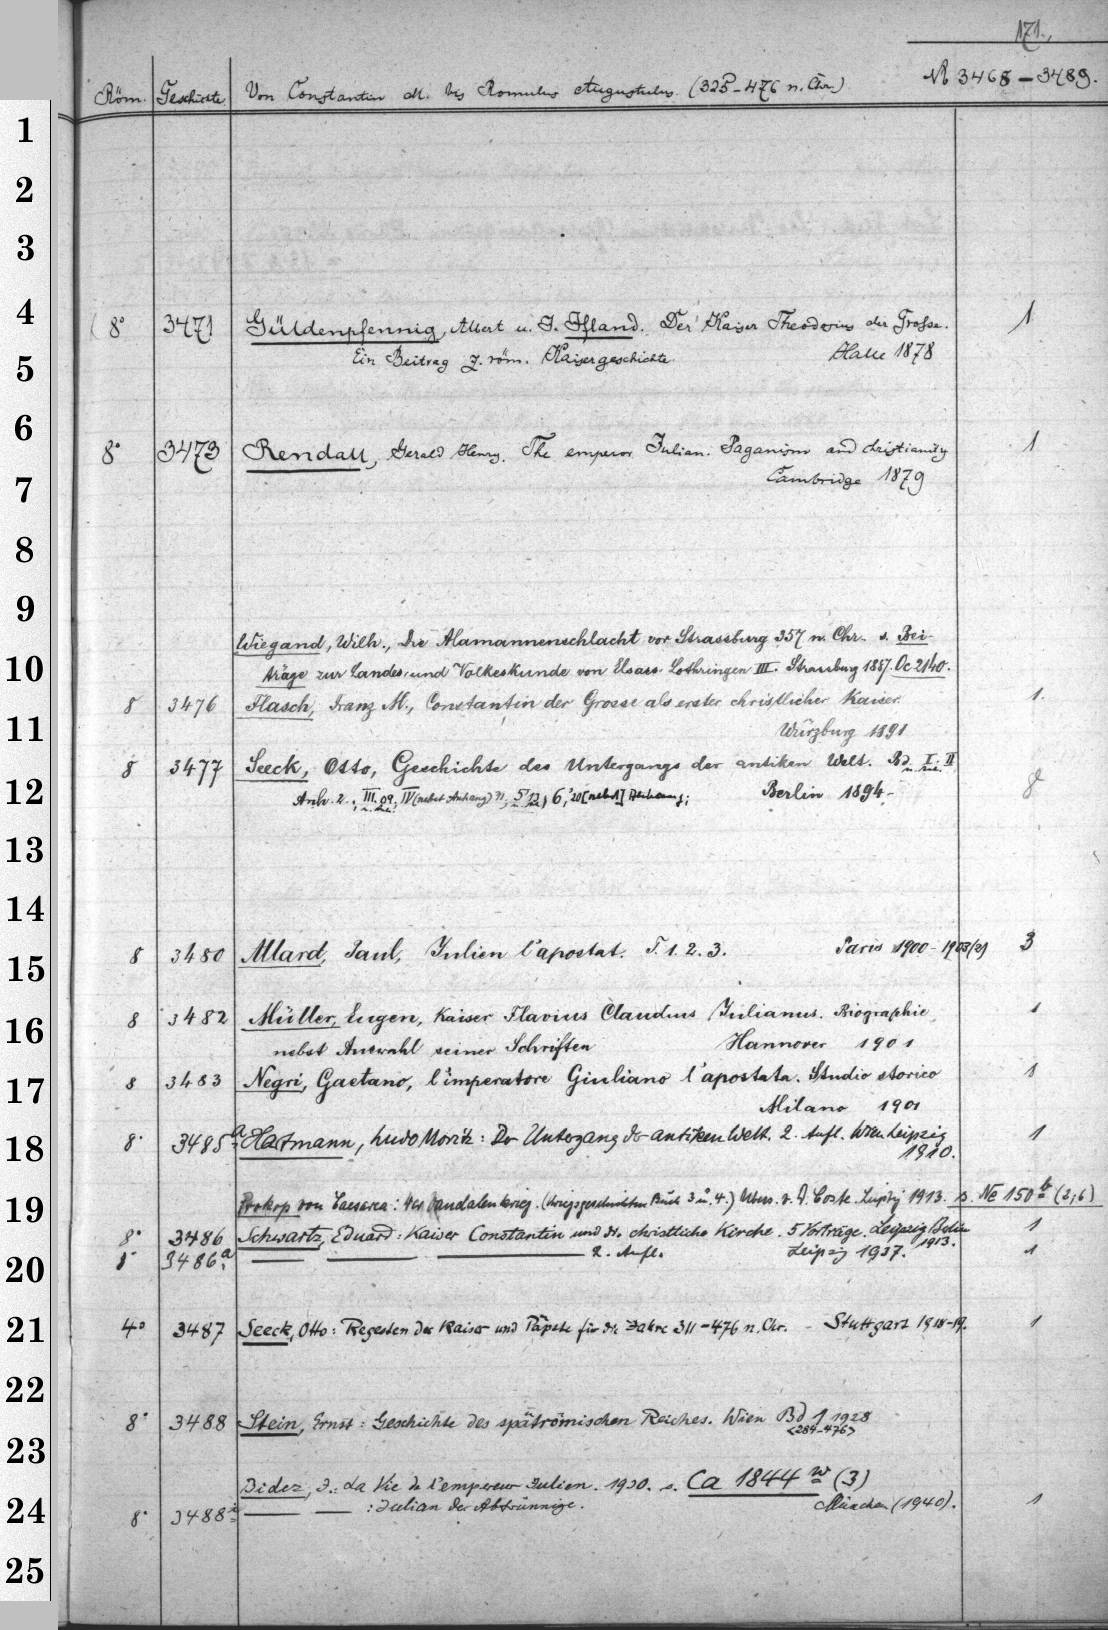 171.
Röm. Geschichte Von Constantin d. bis Romulus Augustulus. (325-476 n. Chr.) № 3468-3489.
1
2
3
4 8° 3471 Güldenpfennig, Albert u. J. Ifland. Der Kaiser Theodosius der Grosse. 1
5 Ein Beitrag z. röm. Kaisergeschichte. Halle 1878
6 8° 3473 Rendall, Gerald Henry. The emperor Julian. Paganism and christianity 1
7 Cambridge 1879
8
9
Wiegand, Wilh., Die Alamannenschlacht vor Strassburg 357 n. Chr. s. Bei-
10 träge zur Landes- und Volkeskunde von Elsass-Lothringen III. Strassburg 1887. Oc 2140.
8 3476 Flasch, Franz M., Constantin der Grosse als erster christlicher Kaiser. 1.
11 Würzburg 1891
8 3477 Seeck, Otto, Geschichte des Untergangs der antiken Welt. Bd. I. II 8
12 Anh. 2.; III. 09; IV (nebst Anhang) 11; 5 13, 6, '20 [nebst] Anhang; Berlin 1894-
13
14
15 8 3480 Allard, Paul, Julien l'apostat. T. 1. 2. 3. Paris 1900-1903 3
16 8 3482 Müller, Eugen, Kaiser Flavius Claudius Julianus. Biographie 1
nebst Auswahl seiner Schriften Hannover 1901
17 8 3483 Negri, Gaetano, l'imperatore Giuliano l'apostata. Studio storico 1
Milano 1901
18 8° 3485a Hartmann, Ludo Moritz: Der Untergang der antiken Welt. 2. Aufl. Wien Leipzig 1
1910.
19 Prokop von Caesarea: Der Vandalenkrieg. (Kriegsgeschichten Buch 3 u. 4.) Übers. v. D. Coste. Leipzig 1913. s. Ne 150 b (2,6)
8° 3486 Schwartz, Eduard: Kaiser Constantin und die christliche Kirche. 5 Vorträge. Leipzig Berlin 1913. 1
20 8° 3486a 2. Aufl. Leipzig 1937. 1
21 4° 3487 Seeck, Otto: Regesten der Kaiser und Päpste für die Jahre 311-476 n. Chr. Stuttgart 1918-19. 1
22
8° 3488 Stein, Ernst: Geschichte des spätrömischen Reiches. Wien Bd 1 1928
23 <284-476>
Bidez, J.: La Vie de l'empereur Julien. 1930. s. Ca 1844 w (3)
24 8° 3488i : Julian der Abtrünnige. München (1940). 1
25